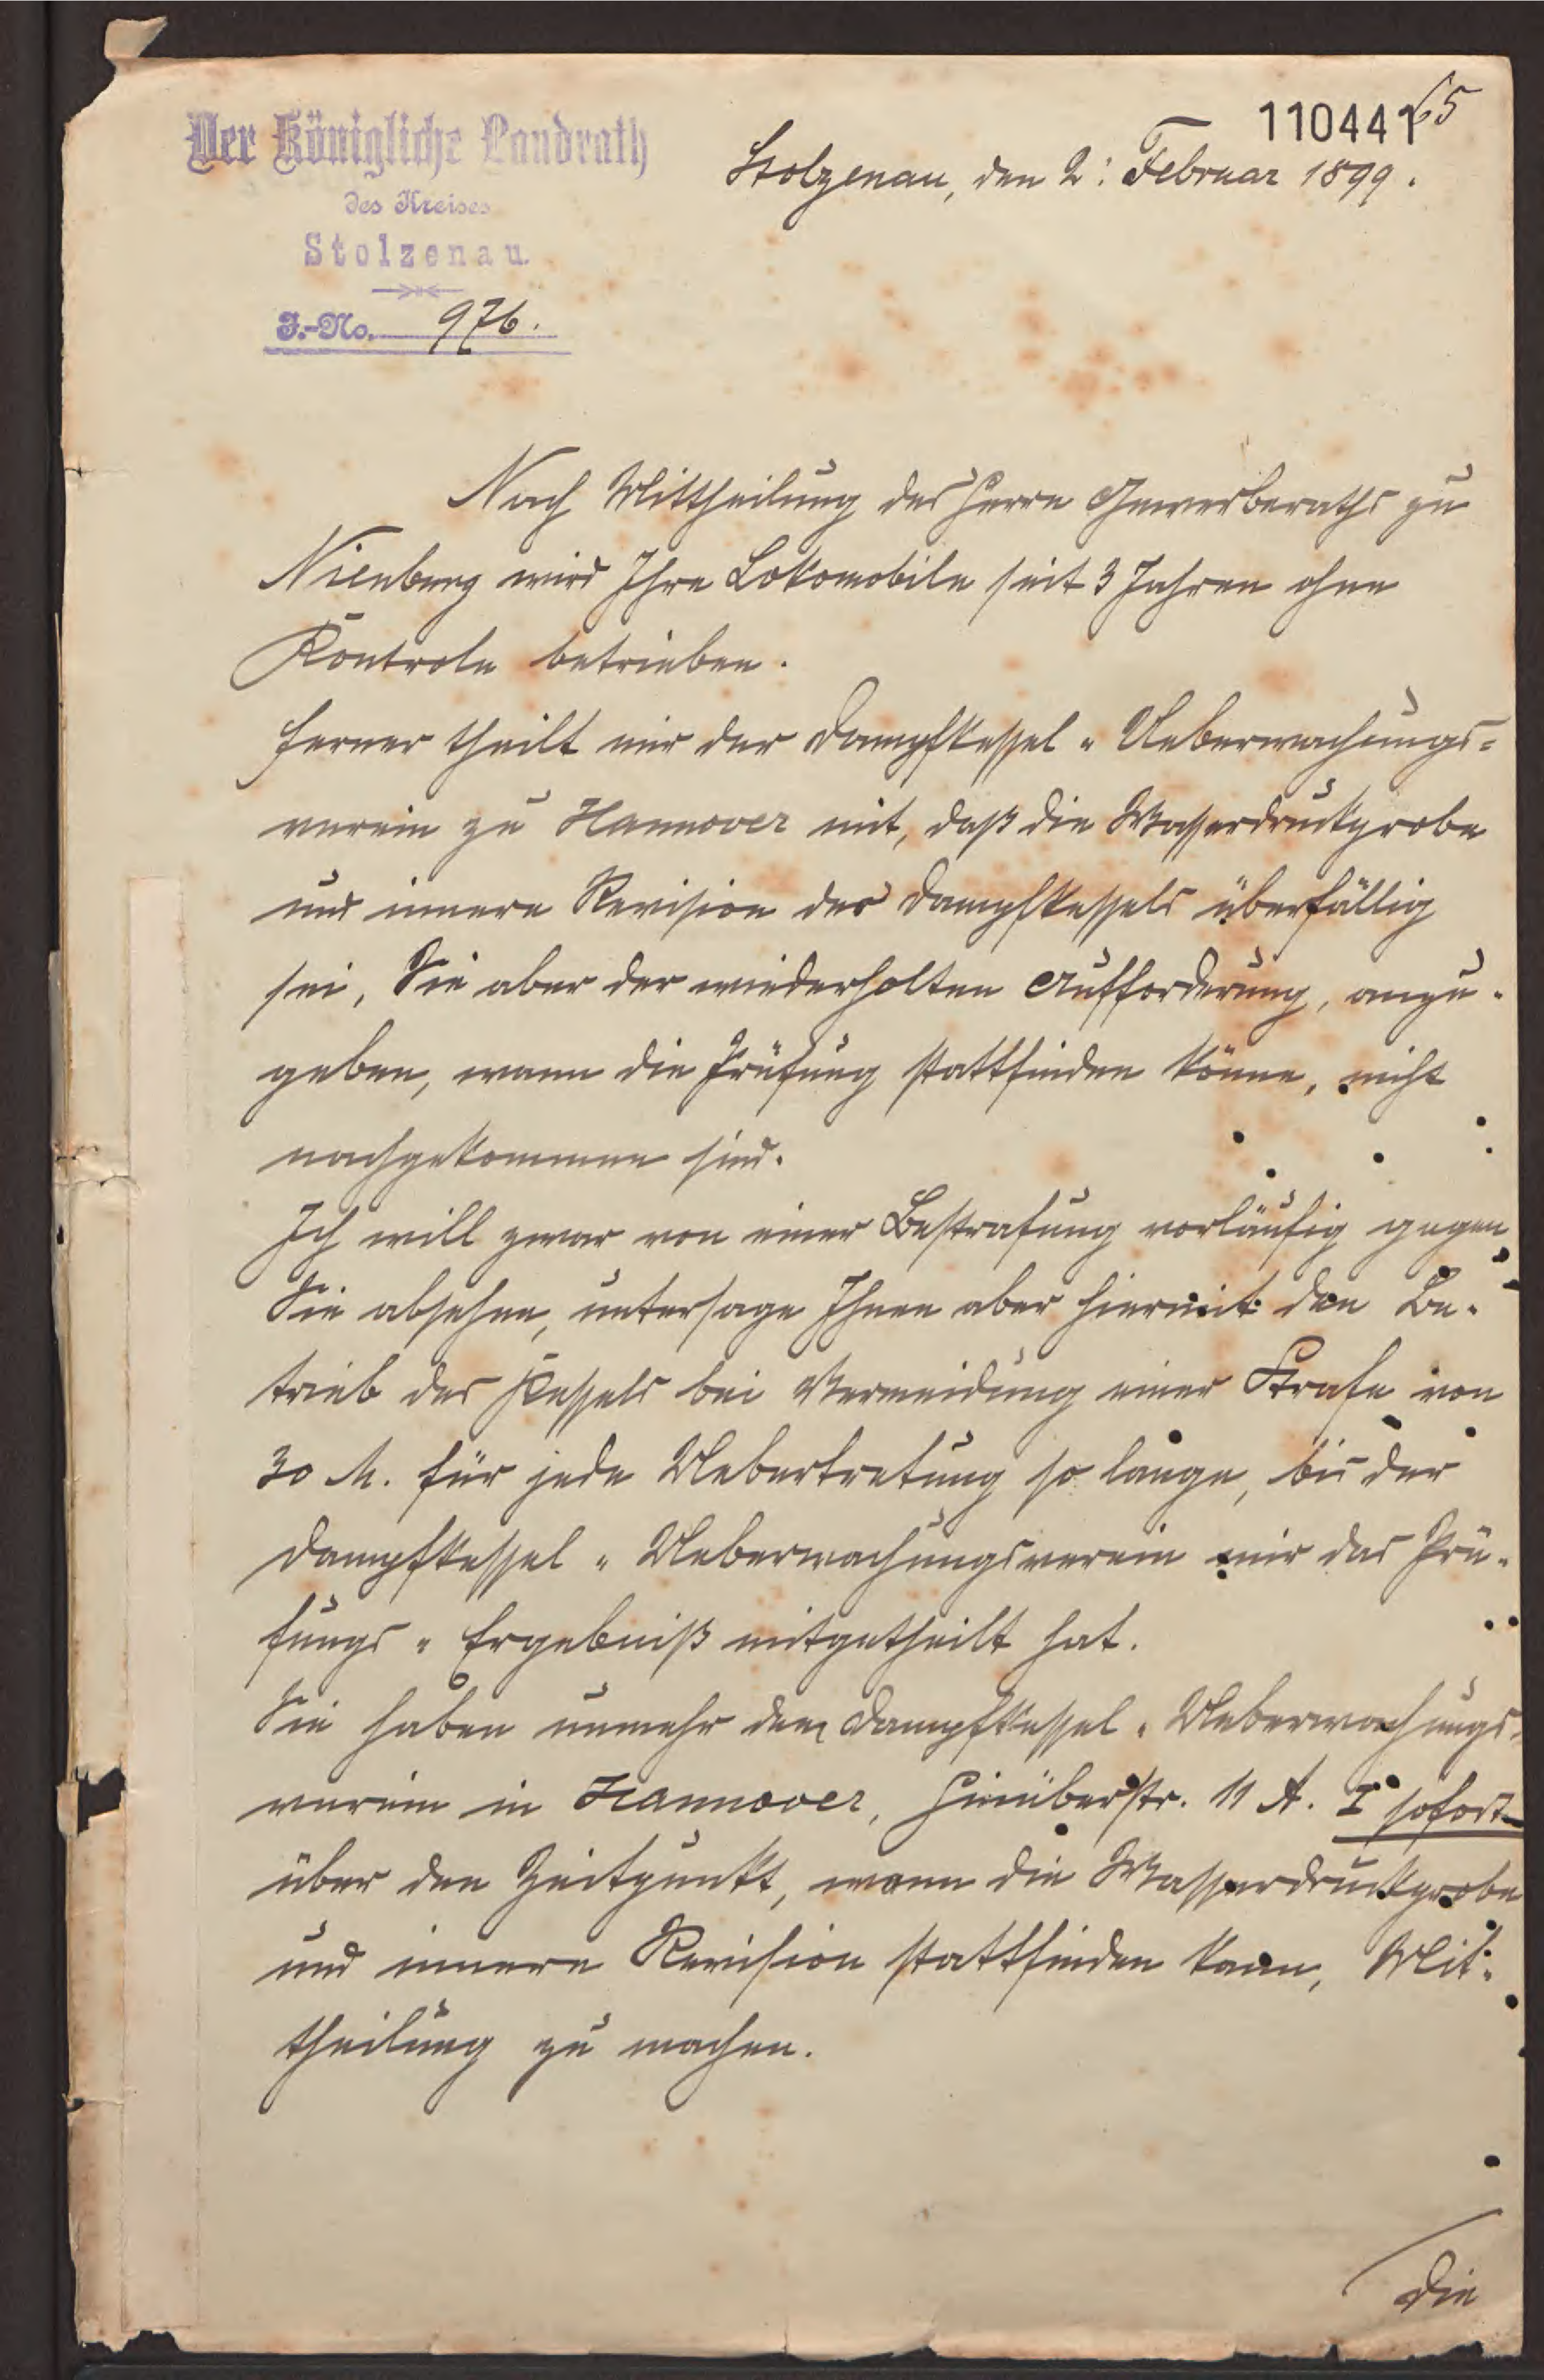 Der Königliche Landrath
des Kreises
Stolzenau.
J.-No. 976.
110441
65
Stolzenau, den 2. Februar 1899.
Nach Mittheilung des Herrn Gewerberaths zu
Nienburg wird Ihre Lokomobile seit 3 Jahren ohne
Kontrole betrieben.
Ferner theilt mir der Dampfkessel-Ueberwachungs-
verein zu Hannover mit, daß die Wasserdruckprobe
und innere Revision des Dampfkessels überfällig
sei, Sie aber der wiederholten Aufforderung, anzu-
geben, wann die Prüfung stattfinden könne, nicht
nachgekommen sind.
Ich will zwar von einer Bestrafung vorläufig gegen
Sie absehen, untersage Ihnen aber hiermit den Be-
trieb des Kessels bei Vermeidung einer Strafe von
30 M. für jede Uebertretung so lange, bis der
Dampfkessel-Ueberwachungsverein mir das Prü-
fungs-Ergebniß mitgetheilt hat.
Sie haben nunmehr dem Dampfkessel-Ueberwachungs-
verein in Hannover, Hinüberstr. 11 A. I sofort
über den Zeitpunkt, wann die Wasserdruckprobe
und innere Revision stattfinden kann, Mit-
theilung zu machen.
Die